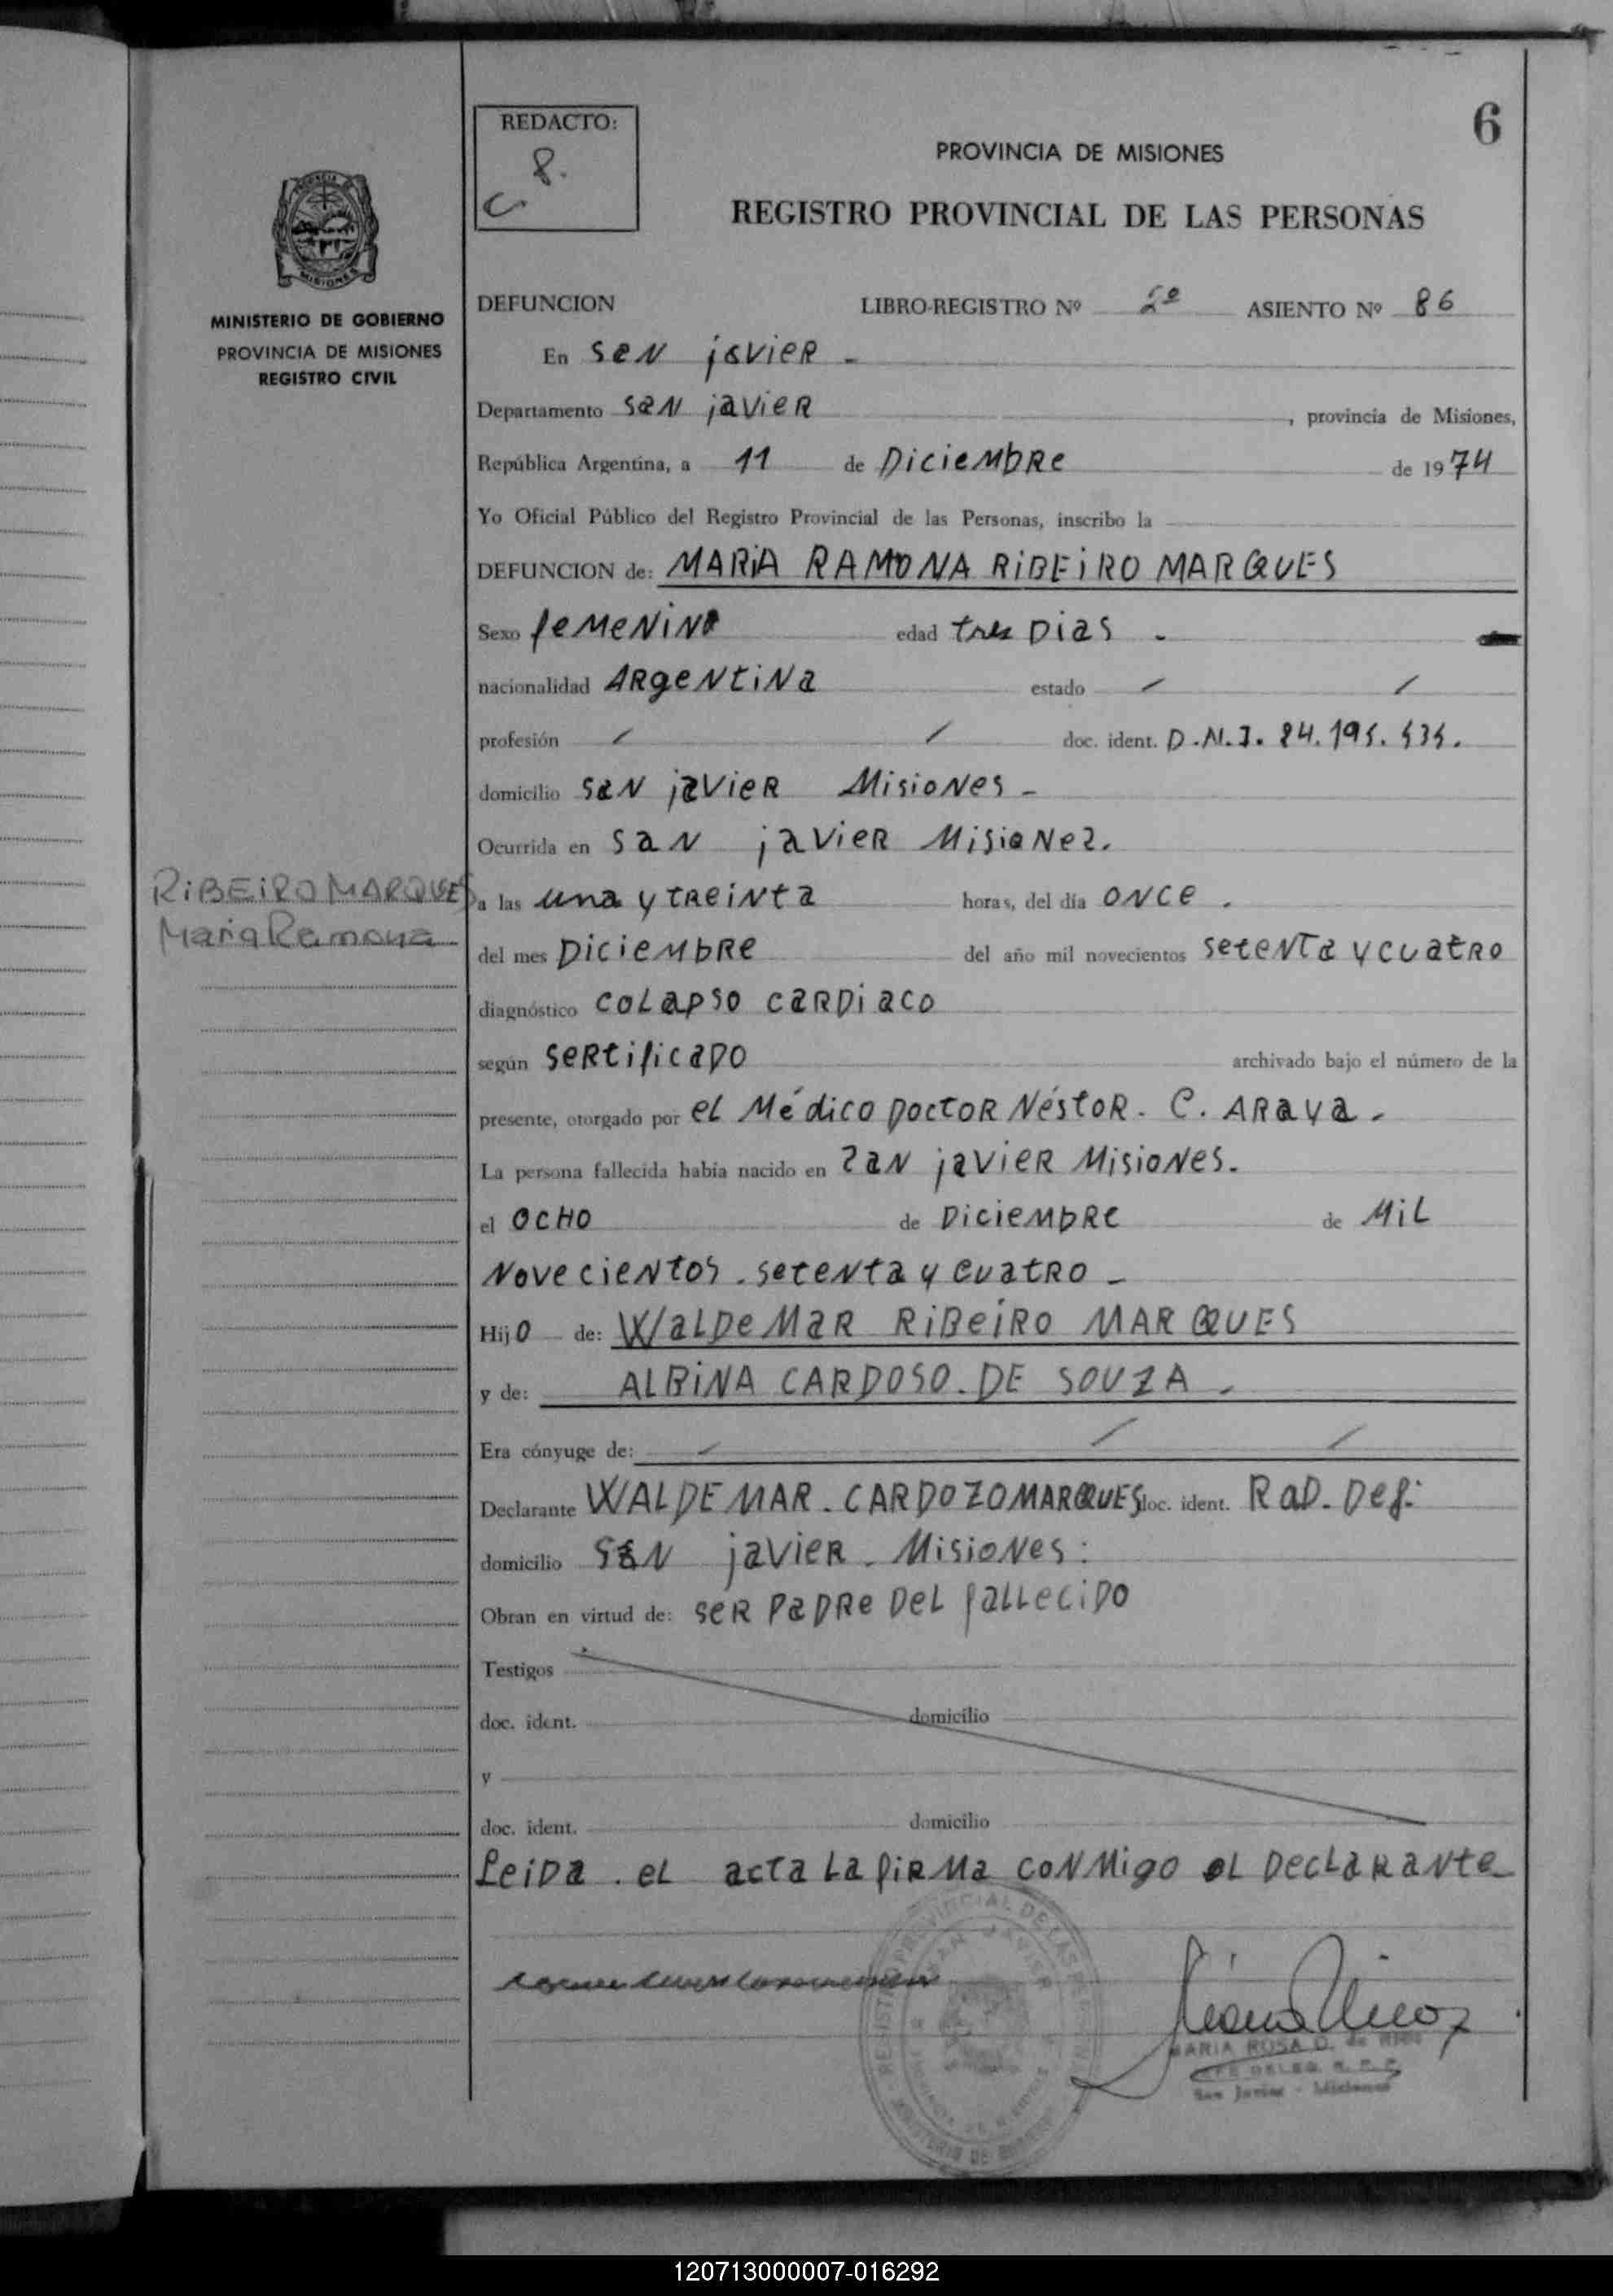 6
REDACTO:
PROVINCIA DE MISIONES
REGISTRO PROVINCIAL DE LAS PERSONAS
MINISTERIO DE GOBIERNO
PROVINCIA DE MISIONES
REGISTRO CIVIL
DEFUNCION LIBRO-REGISTRO Nº ASIENTO Nº 86
En SaN javieR -
Departamento SaN javieR , provincia de Misiones,
República Argentina, a 11 de DicieMbRe de 1974
Yo Oficial Público del Registro Provincial de las Personas, inscribo la
DEFUNCION de: MARIA RAMONA RiBEiRO MARQUES
Sexo feMeNiNo edad tres Dias -
nacionalidad ARgeNtiNa estado / /
profesión / / doc. ident. D.N.I.
domicilio SaN javieR MisioNes -
Ocurrida en SaN javieR MisioNes.
RiBEiRO MARQUES
Maria Ramona
a las una y tReiNta horas, del día ONCe .
del mes DicieMbRe del año mil novecientos SeteNTa y cuatRo
diagnóstico COLapso caRDiaco
según SeRtificaDo archivado bajo el número de la
presente, otorgado por eL Médico DoctoR NéstoR. C. ARaya.
La persona fallecida había nacido en SaN javieR MisioNes.
el OCHO de DicieMbRe de MiL
NovecieNtos. seteNta y cuatRo -
Hijo de: WaLDeMaR RiBeiRo MARQUES
y de: ALBiNA CARDOSO. DE SOUZA .
Era cónyuge de: / / /
Declarante WALDEMAR. CARDOZO MARQUES doc. ident. RaD. Def:
domicilio SaN javieR. MisioNes:
Obran en virtud de: seR PaDRe DeL faLLeciDo
Testigos
doc. ident. domicilio
y
doc. ident. domicilio
LeiDa . eL acta La fiRMa coNMigo eL DecLaRaNte
MARIA ROSA D. de
San Javier - Misiones
120713000007-016292